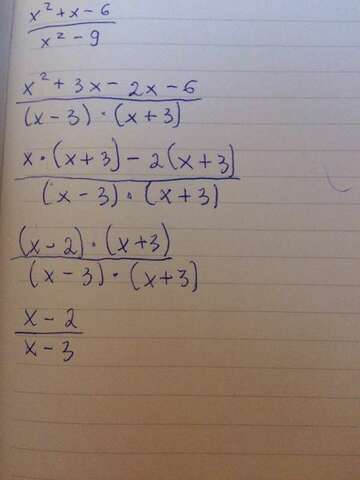 x² + x - 6
x² - 9
x² + 3x - 2x - 6
(x - 3) · (x + 3)
x · (x + 3) - 2(x + 3)
(x - 3) · (x + 3)
(x - 2) · (x + 3)
(x - 3) · (x + 3)
x - 2
x - 3